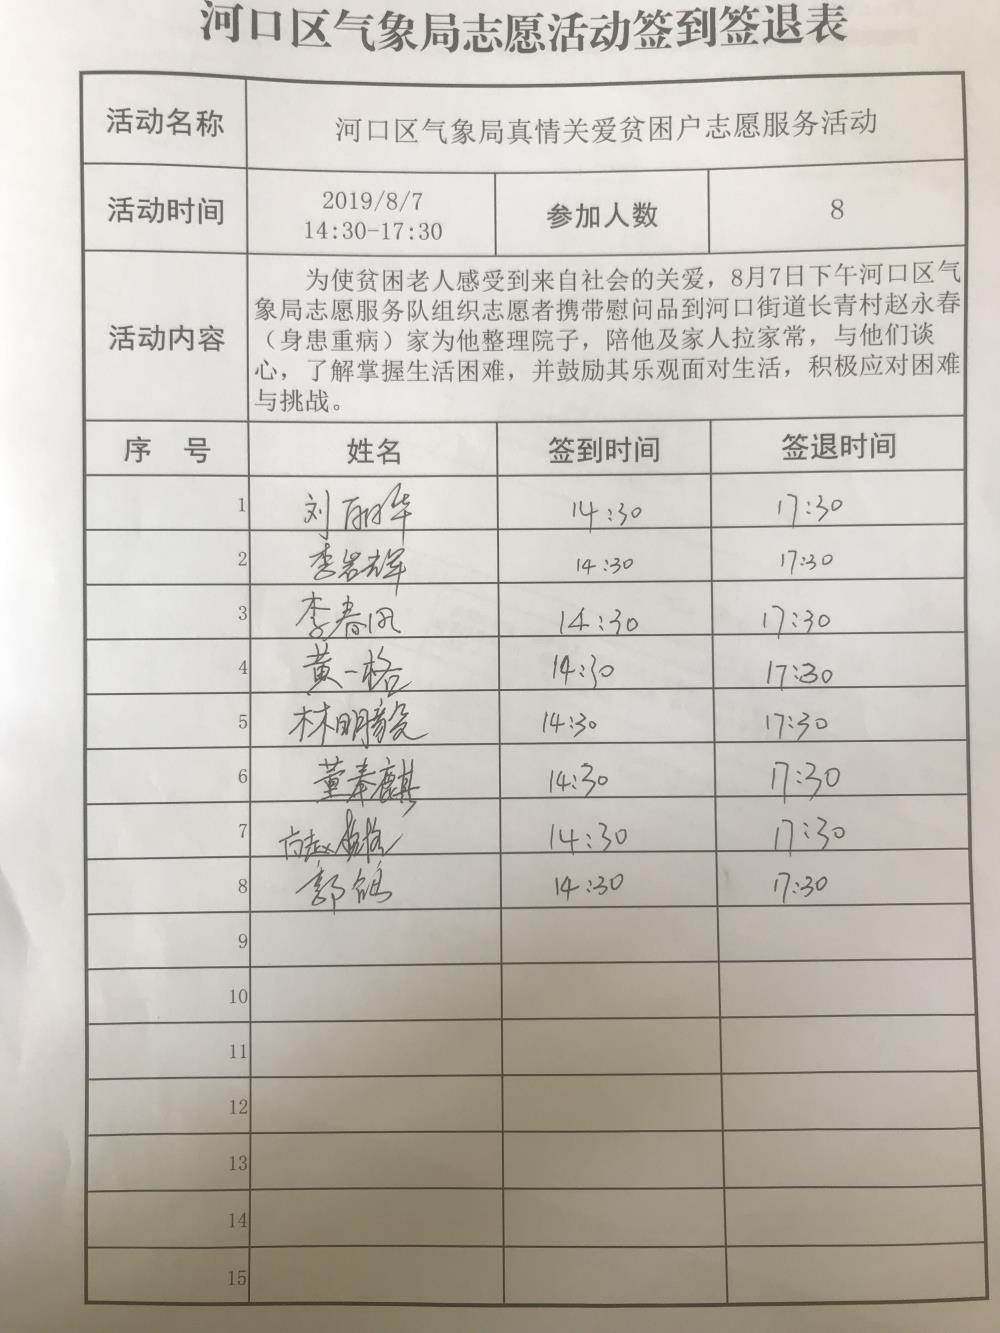 河口区气象局志愿活动签到签退表
活动名称 河口区气象局真情关爱贫困户志愿服务活动
活动时间 2019/8/7 14:30-17:30 参加人数 8
活动内容
为使贫困老人感受到来自社会的关爱，8月7日下午河口区气
象局志愿服务队组织志愿者携带慰问品到河口街道长青村赵永春
（身患重病）家为他整理院子，陪他及家人拉家常，与他们谈
心，了解掌握生活困难，并鼓励其乐观面对生活，积极应对困难
与挑战。
序 号 姓名 签到时间 签退时间
1 刘丽华 14:30 17:30
2 李岩辉 14:30 17:30
3 李春风 14:30 17:30
4 黄一格 14:30 17:30
5 林明毅 14:30 17:30
6 董奉麒 14:30 17:30
7 14:30 17:30
8 郭鸽 14:30 17:30
9
10
11
12
13
14
15